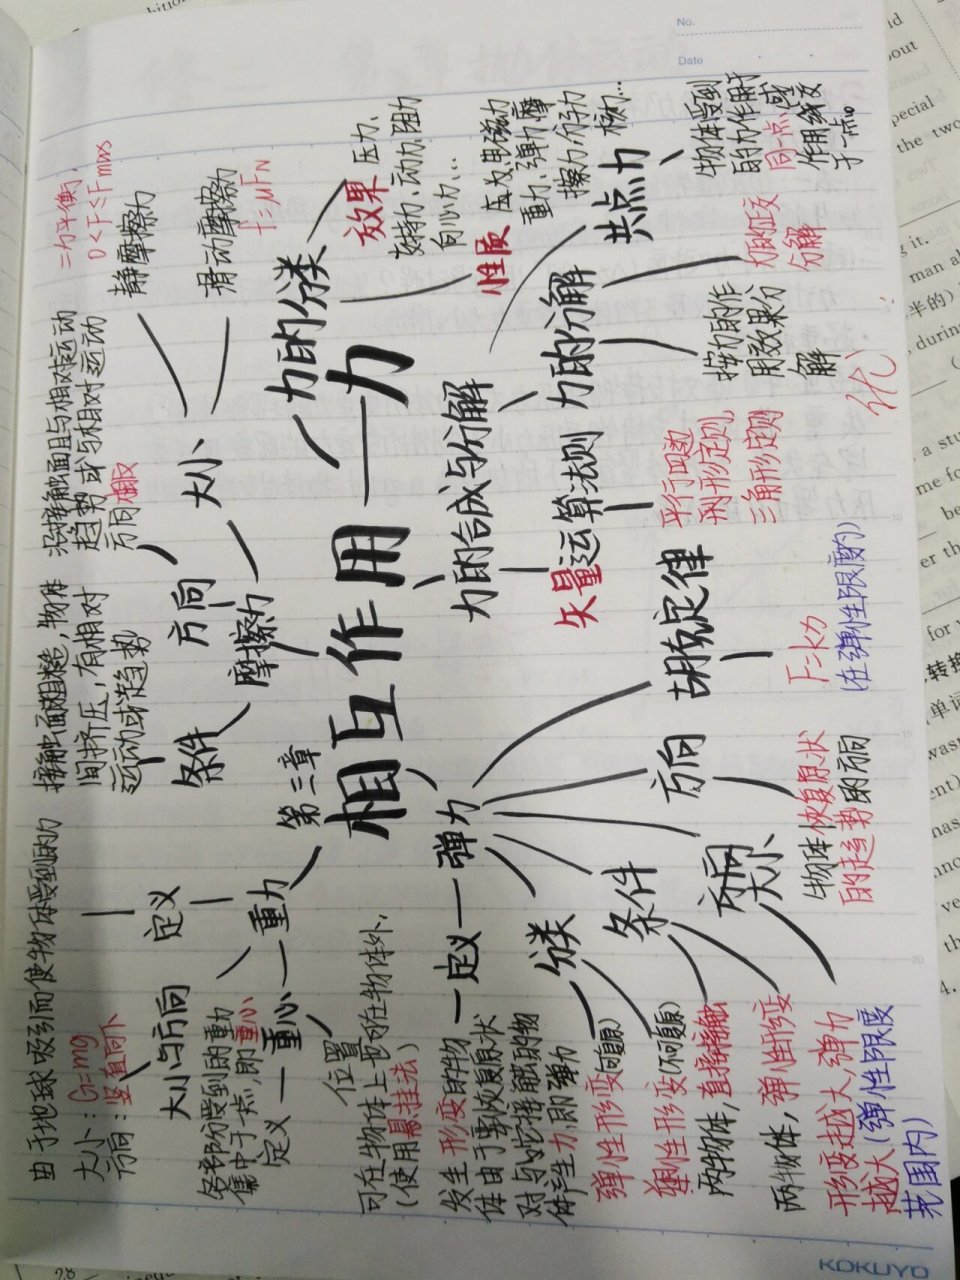 第三章
相互作用——力
重力
定义
由于地球吸引而使物体受到的力
大小与方向
大小:G=mg
方向:竖直向下
重心
定义
各部分受到的重力
集中于一点,即重心
位置
可在物体上也可在物体外.
(使用悬挂法)
摩擦力
条件
接触面粗糙,物体
间挤压,有相对
运动或趋势
方向
沿接触面且与相对运动
趋势或与相对运动
方向相反
大小
静摩擦力
二力平衡.
0<F≤Fmax
滑动摩擦力
f=μFN
力的分类
效果
压力、
支持力、动力、阻力
向心力…
性质
擦力、分子力
核力…
力的合成与分解
运算法则
矢量
平行四边
形定则
三角形定则
力的分解
按力的作
用效果分
解
力的正交
分解
共点力
物体受到
的力作用于
同一点,或
作用线交
于一点。
弹力
定义
发生形变的物
体由于要恢复原状
对与它接触的物
体产生力,即弹力
分类
弹性形变(可复原)
塑性形变(不可复原)
条件
两物体,直接接触
两物体,弹性形变
大小
形变越大,弹力
越大(弹性限度
范围内)
方向
物体恢复原状
的趋势的方向
胡克定律
(在弹性限度内)
优
No.
Date
KOKUYO